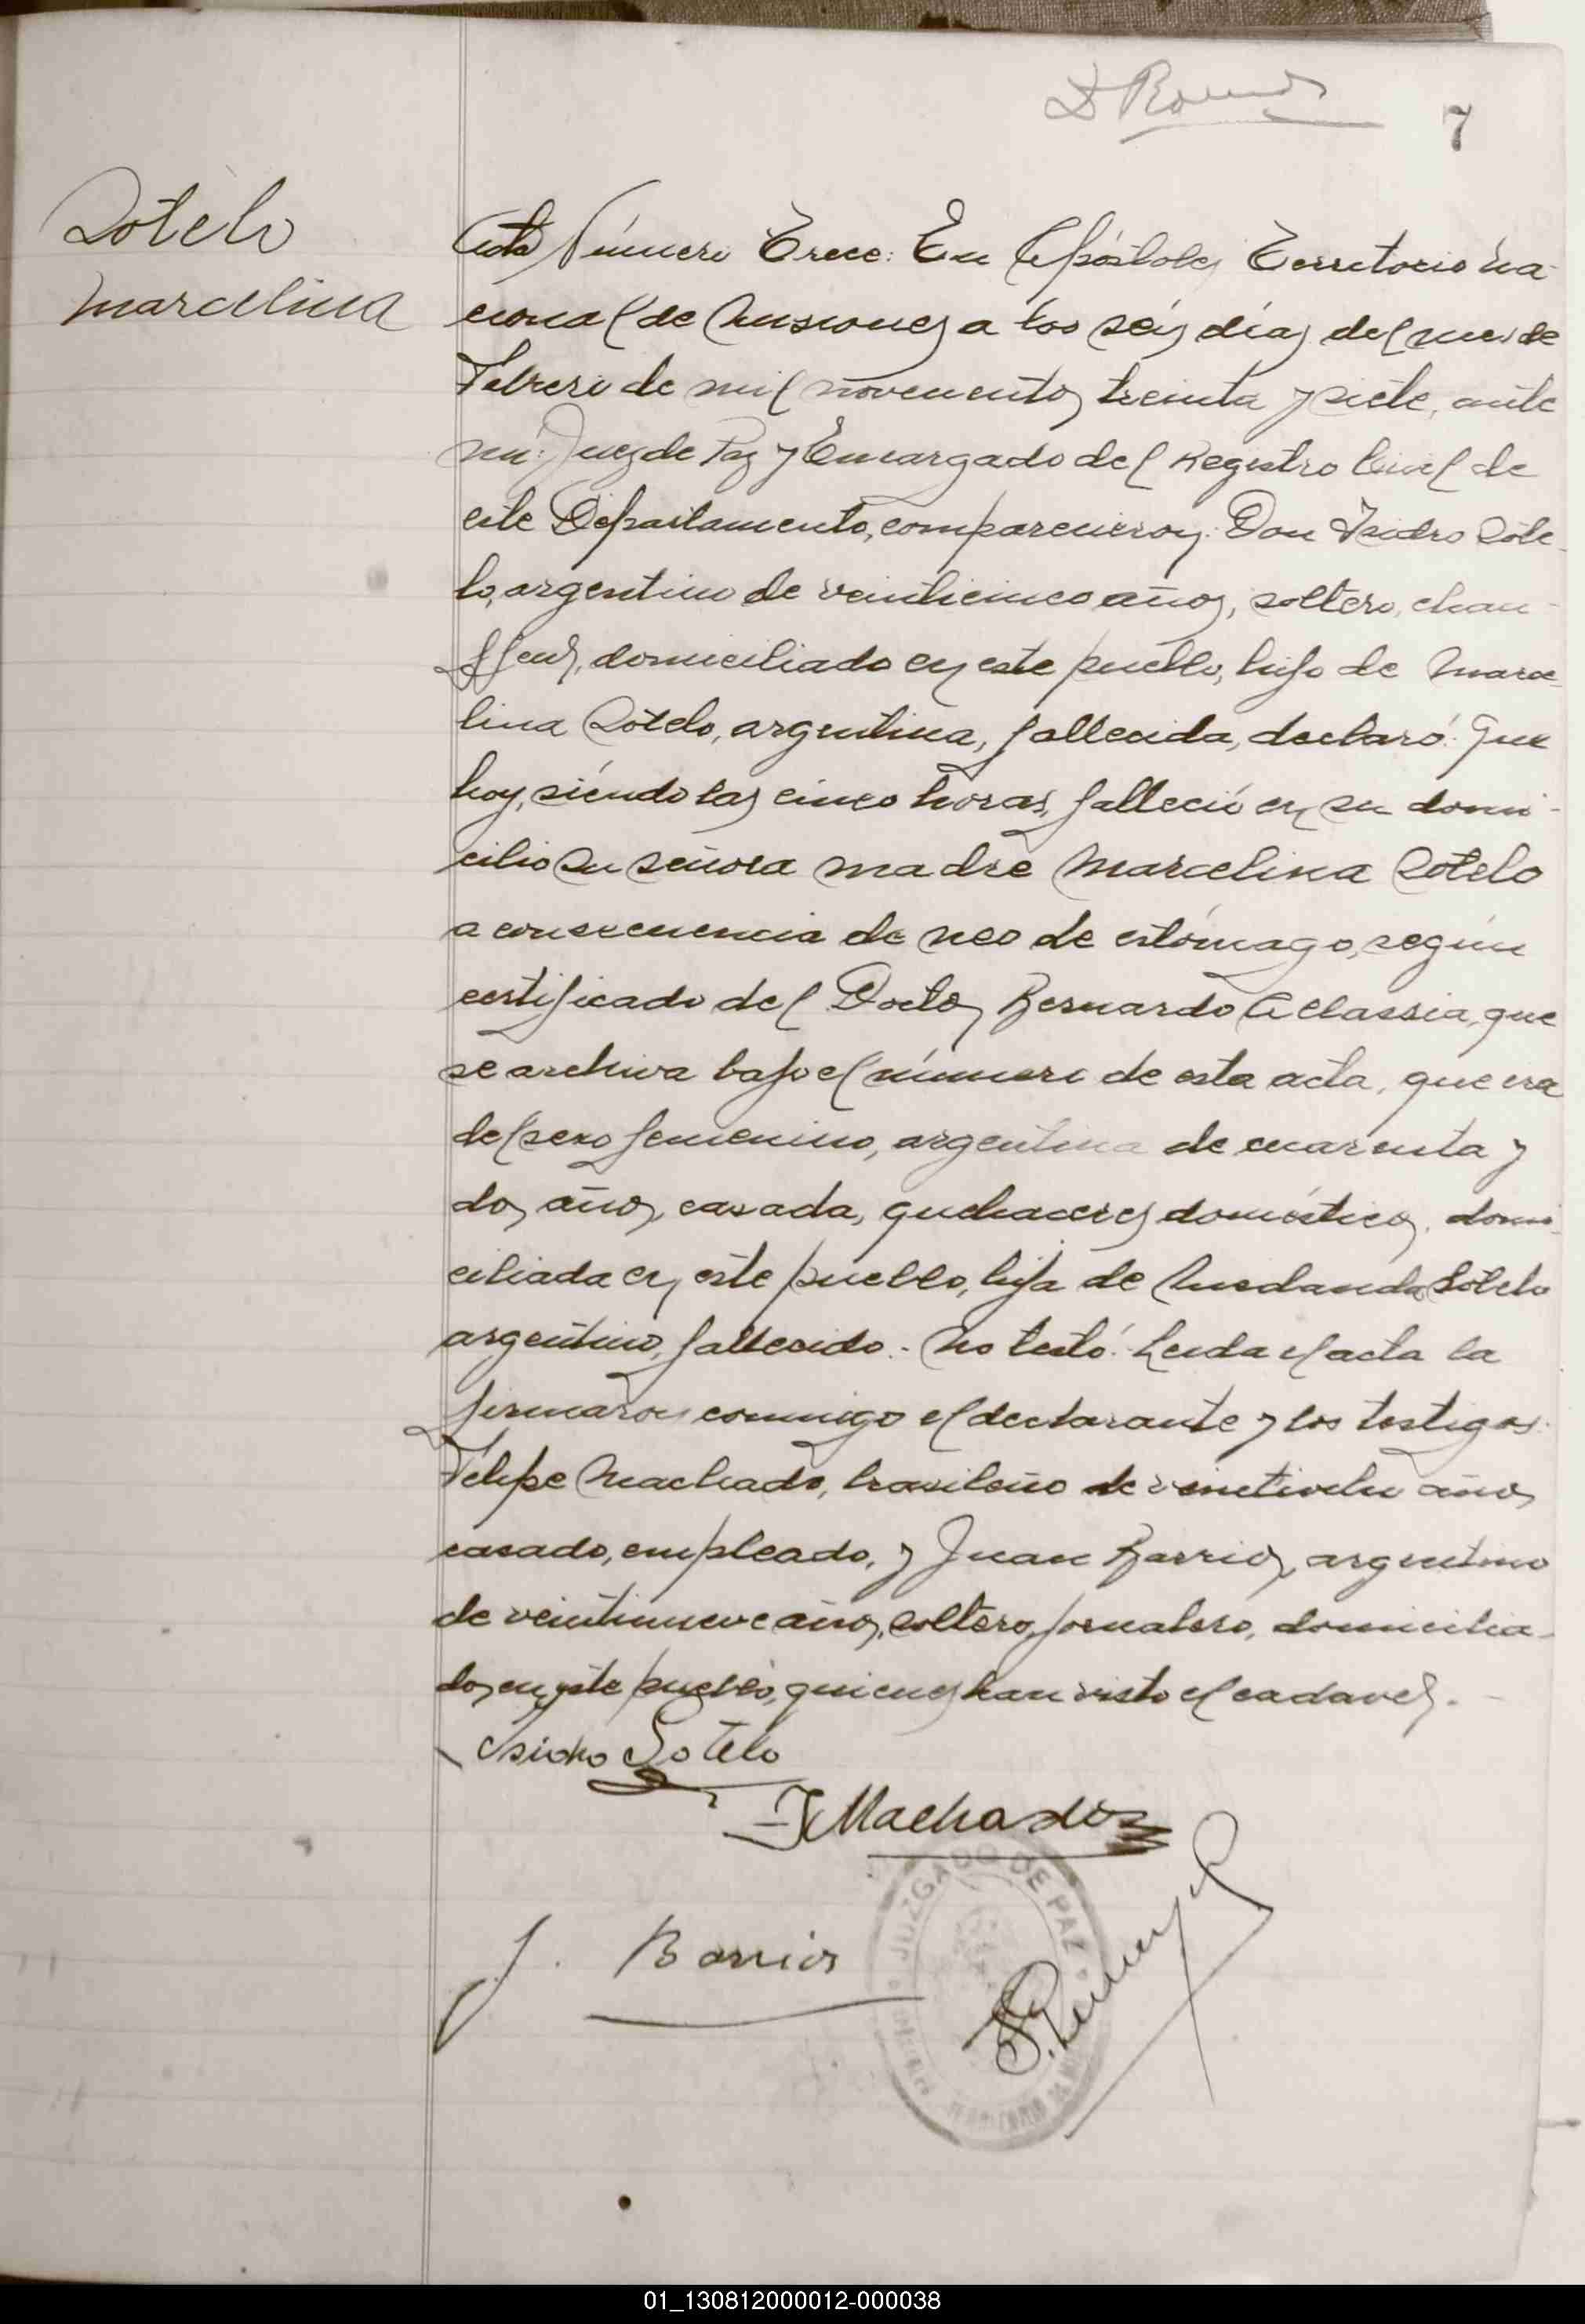 7
Sotelo
Marcelina
Acta Número Trece: En Apóstoles Territorio Na-
cional de Misiones a los seis días del mes de
Febrero de mil novecientos treinta y siete, ante
mí: Juez de Paz y Encargado del Registro Civil de
este Departamento, comparecieron: Don Isidro Sote-
lo, argentino de veinticinco años, soltero, chau-
ffeur, domiciliado en este pueblo, hijo de Marce-
lina Sotelo, argentina, fallecida, declaró: Que
hoy, siendo las cinco horas, falleció en su domi-
cilio su señora madre Marcelina Sotelo
a consecuencia de neo de estómago, según
certificado del Doctor Bernardo A
que
se archiva bajo el número de esta acta, que era
del sexo femenino, argentina de cuarenta y
dos años, casada, quehaceres domésticos, domi-
ciliada en este pueblo, hija de Sotelo
argentino, fallecido.- No testó: Leida el acta la
firmaron conmigo el declarante y los testigos:
Felipe Machado, brasileño de años
casado, empleado, y Juan Barrios, argentino
de veintinueve años, soltero, jornalero, domicilia-
dos en este pueblo, quienes han visto el cadaver.-
Isidro Sotelo
F Machado
J. Barrios
JUZGADO DE PAZ
01_130812000012-000038